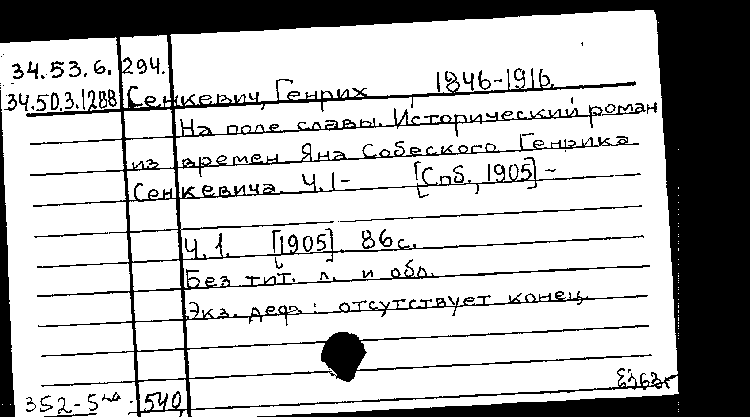 34.53.6. 294.
34.50.3.1288 Сенкевич, Генрих 1846-1916.
На поле славы. Исторический роман
из времен Яна Собеского Генрика
Сенкевича. Ч.1- [Спб., 1905] -
Ч. 1. [1905]. 86 с.
Без тит. л. и обл.
Экз. деф.: отсутствует конец.
352-5 540